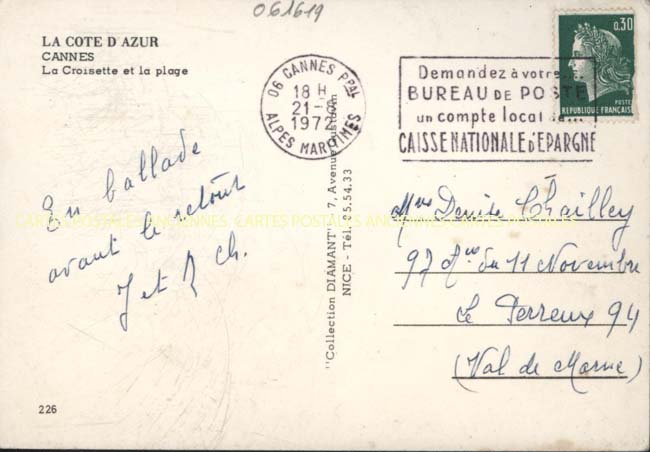 061619
LA COTE D'AZUR
CANNES
La Croisette et la plage
06 CANNES PPAL
18 H
21-
1972
ALPES MARITIMES
Demandez à votre
BUREAU DE POSTE
un compte local
CAISSE NATIONALE D'EPARGNE
0,30
POSTES
REPUBLIQUE FRANÇAISE
En ballade
avant le retour
J et R Ch.
"Collection DIAMANT" 7, Avenue
NICE - Tél. 85.54.33
Mme Denise Chailley
97 Av du 11 Novembre
Le Perreux 94
(Val de Marne)
CARTES POSTALES ANCIENNES CARTES POSTALES ANCIENNES CARTES POSTALES ANCIENNES
226